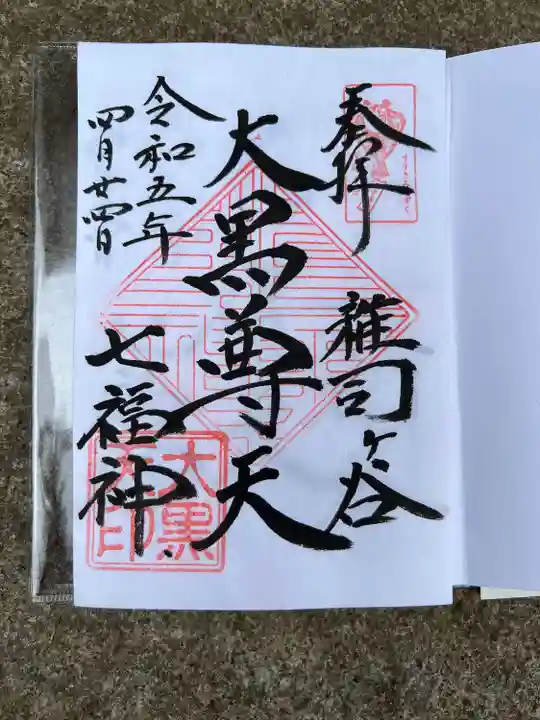 奉拝
雑司ヶ谷
大黒尊天
令和五年
四月廿四日
七福神
大黒
天印